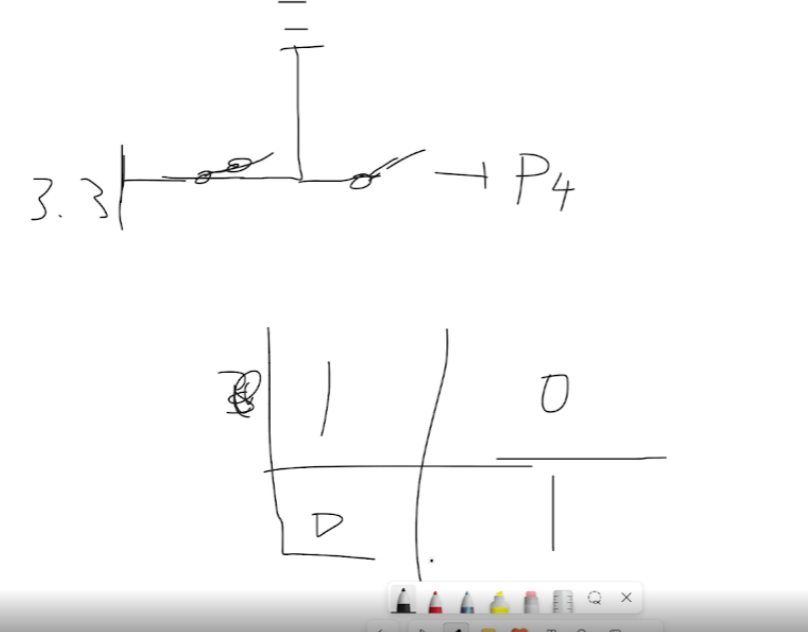 3.3 P4
1 0
0 1